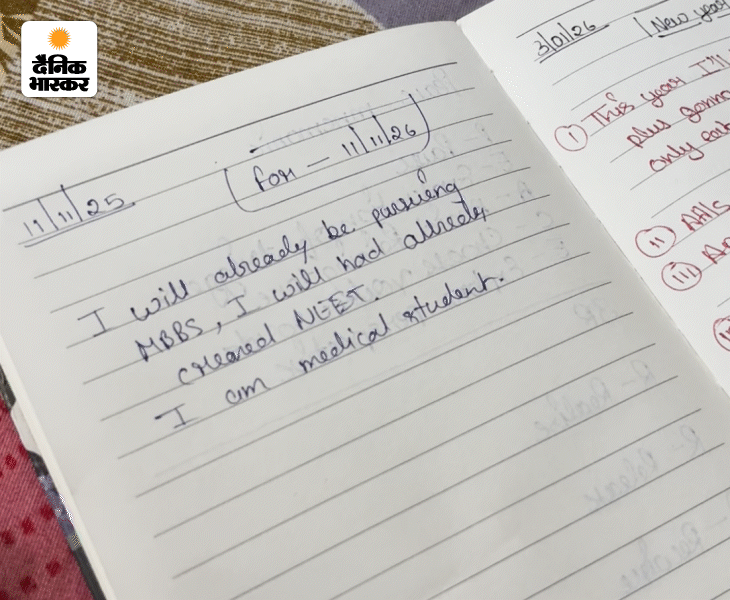 दैनिक
भास्कर
11/11/25
for - 11/11/26
I will already be pursuing
MBBS, I will had already
cleared NEET.
I am medical student.
3/01/26
New year
(i) This year I'll
plus gonna
only eat
(ii)
(iii)